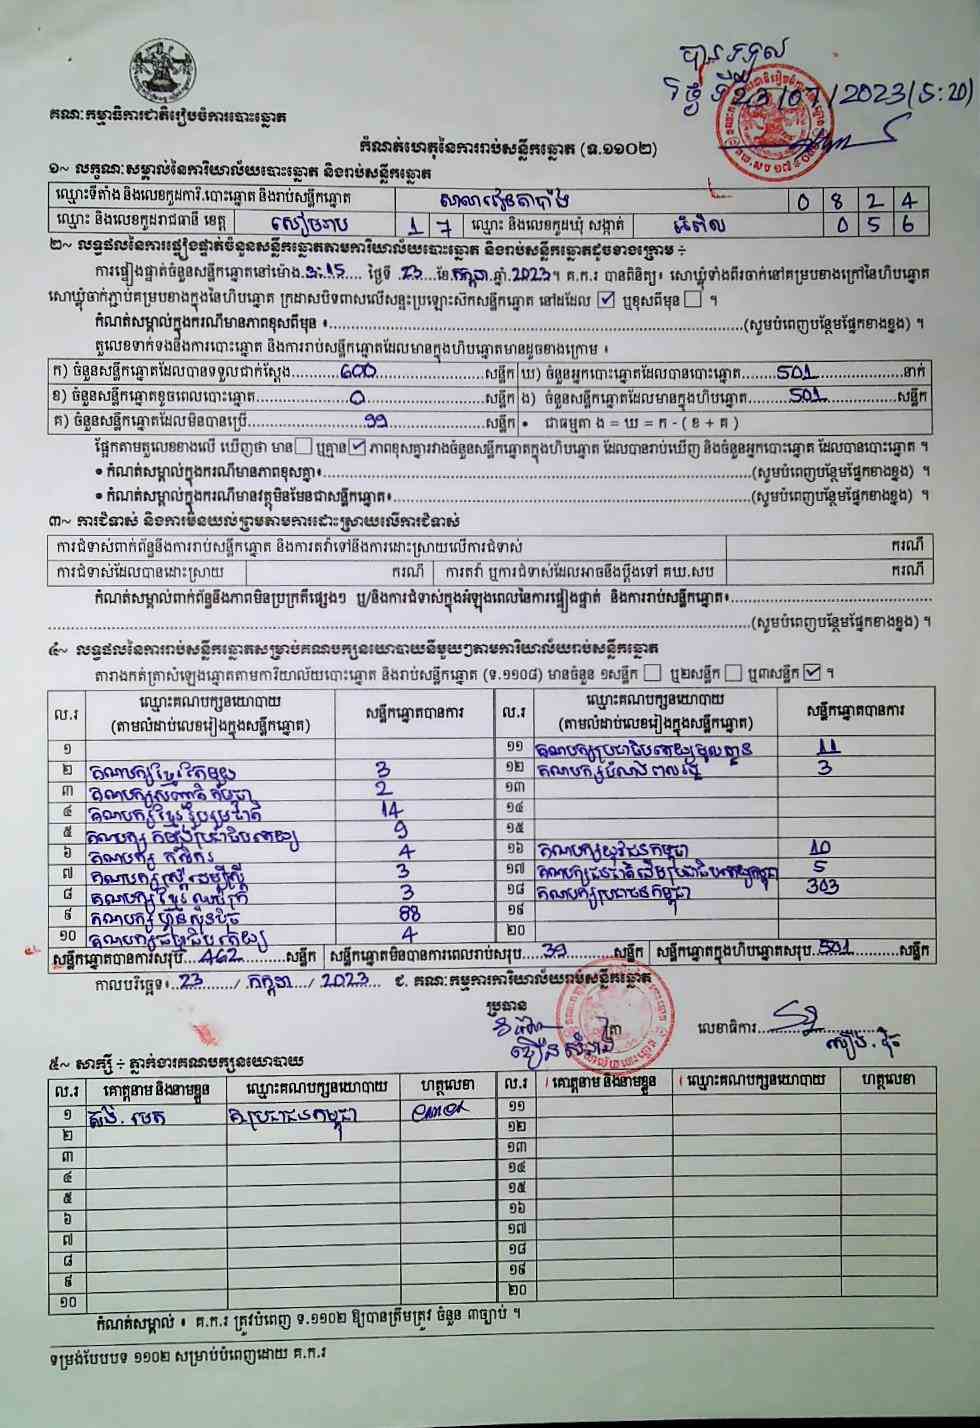 បានទទួល
ថ្ងៃទី23/07/2023(5:20)
គណៈកម្មាធិការជាតិរៀបចំការបោះឆ្នោត
កំណត់ហេតុនៃការរាប់សន្លឹកឆ្នោត (ទ.១១០២)
១~ លក្ខណៈសម្គាល់នៃការិយាល័យបោះឆ្នោត និងរាប់សន្លឹកឆ្នោត
ឈ្មោះទីតាំង និងលេខកូដការិ.បោះឆ្នោត និងរាប់សន្លឹកឆ្នោត 0 8 2 4
ឈ្មោះ និងលេខកូដរាជធានី ខេត្ត សៀមរាប 1 7 ឈ្មោះ និងលេខកូដឃុំ សង្កាត់ 0 5 6
២~ លទ្ធផលនៃការផ្ទៀងផ្ទាត់ចំនួនសន្លឹកឆ្នោតតាមការិយាល័យបោះឆ្នោត និងរាប់សន្លឹកឆ្នោតដូចខាងក្រោម ÷
ការផ្ទៀងផ្ទាត់ចំនួនសន្លឹកឆ្នោតនៅម៉ោង 3:15 ថ្ងៃទី 23 ខែ កក្កដា ឆ្នាំ 2023។ គ.ក.រ បានពិនិត្យ៖ សោឃ្លុំទាំងពីរចាក់នៅគម្របខាងក្រៅនៃហិបឆ្នោត
សោឃ្លុំចាក់ភ្ជាប់គម្របខាងក្នុងនៃហិបឆ្នោត ក្រដាសបិទពាសលើសន្ទះប្រឡោះសឹកសន្លឹកឆ្នោត នៅដដែល ☑ ឬខុសពីមុន ☐ ។
កំណត់សម្គាល់ក្នុងករណីមានភាពខុសពីមុន ៖ (សូមបំពេញបន្ថែមផ្នែកខាងខ្នង) ។
តួលេខទាក់ទងនឹងការបោះឆ្នោត និងការរាប់សន្លឹកឆ្នោតដែលមានក្នុងហិបឆ្នោតមានដូចខាងក្រោម ៖
ក) ចំនួនសន្លឹកឆ្នោតដែលបានទទួលជាក់ស្តែង 600 សន្លឹក ឃ) ចំនួនអ្នកបោះឆ្នោតដែលបានបោះឆ្នោត 501 នាក់
ខ) ចំនួនសន្លឹកឆ្នោតខូចពេលបោះឆ្នោត 0 សន្លឹក ង) ចំនួនសន្លឹកឆ្នោតដែលមានក្នុងហិបឆ្នោត 501 សន្លឹក
គ) ចំនួនសន្លឹកឆ្នោតដែលមិនបានប្រើ 99 សន្លឹក • ជាធម្មតា ង = ឃ = ក - ( ខ + គ )
ផ្អែកតាមតួលេខខាងលើ ឃើញថា មាន ☐ ឬគ្មាន ☑ ភាពខុសគ្នារវាងចំនួនសន្លឹកឆ្នោតក្នុងហិបឆ្នោត ដែលបានរាប់ឃើញ និងចំនួនអ្នកបោះឆ្នោត ដែលបានបោះឆ្នោត ។
• កំណត់សម្គាល់ក្នុងករណីមានភាពខុសគ្នា៖ (សូមបំពេញបន្ថែមផ្នែកខាងខ្នង) ។
• កំណត់សម្គាល់ក្នុងករណីមានវត្ថុមិនមែនជាសន្លឹកឆ្នោត៖ (សូមបំពេញបន្ថែមផ្នែកខាងខ្នង) ។
៣~ ការជំទាស់ និងការមិនយល់ព្រមតាមការដោះស្រាយលើការជំទាស់
ការជំទាស់ពាក់ព័ន្ធនឹងការរាប់សន្លឹកឆ្នោត និងការតវ៉ាទៅនឹងការដោះស្រាយលើការជំទាស់ ករណី
ការជំទាស់ដែលបានដោះស្រាយ ករណី ការតវ៉ា ឬការជំទាស់ដែលអាចនឹងប្តឹងទៅ គឃ.សប ករណី
កំណត់សម្គាល់ពាក់ព័ន្ធនឹងភាពមិនប្រក្រតីផ្សេងៗ ឬ/និងការជំទាស់ក្នុងអំឡុងពេលនៃការផ្ទៀងផ្ទាត់ និងការរាប់សន្លឹកឆ្នោត៖
(សូមបំពេញបន្ថែមផ្នែកខាងខ្នង) ។
៤~ លទ្ធផលនៃការរាប់សន្លឹកឆ្នោតសម្រាប់គណបក្សនយោបាយនីមួយៗតាមការិយាល័យរាប់សន្លឹកឆ្នោត
តារាងកត់ត្រាសំឡេងឆ្នោតតាមការិយាល័យបោះឆ្នោត និងរាប់សន្លឹកឆ្នោត (ទ.១១០៨) មានចំនួន ១សន្លឹក ☐ ឬ២សន្លឹក ☐ ឬ៣សន្លឹក ☑ ។
ល.រ ឈ្មោះគណបក្សនយោបាយ សន្លឹកឆ្នោតបានការ ល.រ ឈ្មោះគណបក្សនយោបាយ សន្លឹកឆ្នោតបានការ
(តាមលំដាប់លេខរៀងក្នុងសន្លឹកឆ្នោត) (តាមលំដាប់លេខរៀងក្នុងសន្លឹកឆ្នោត)
១ ១១ គណបក្សប្រជាធិបតេយ្យមូលដ្ឋាន 11
២ គណបក្សខ្មែរតែមួយ 3 ១២ គណបក្សបំណងពលរដ្ឋ 3
៣ គណបក្សសញ្ជាតិកម្ពុជា 2 ១៣
៤ គណបក្សខ្មែររួបរួមជាតិ 14 ១៤
៥ គណបក្សកម្លាំងប្រជាធិបតេយ្យ 9 ១៥
៦ គណបក្សកសិករ 4 ១៦ គណបក្សយុវជនកម្ពុជា 10
៧ គណបក្សស្ត្រីដើម្បីស្ត្រី 3 ១៧ គណបក្សជនជាតិដើមប្រជាធិបតេយ្យកម្ពុជា 5
៨ គណបក្សខ្មែរឈប់ក្រ 3 ១៨ គណបក្សប្រជាជនកម្ពុជា 303
៩ គណបក្សហ៊្វុនស៊ិនប៉ិច 88 ១៩
១០ គណបក្សធម្មាធិបតេយ្យ 4 ២០
សន្លឹកឆ្នោតបានការសរុប 462 សន្លឹក សន្លឹកឆ្នោតមិនបានការពេលរាប់សរុប 39 សន្លឹក សន្លឹកឆ្នោតក្នុងហិបឆ្នោតសរុប 501 សន្លឹក
កាលបរិច្ឆេទ៖ 23 / កក្កដា / 2023 ជ. គណៈកម្មការការិយាល័យរាប់សន្លឹកឆ្នោត
ប្រធាន
លេខាធិការ
៥~ សាក្សី ÷ ភ្នាក់ងារគណបក្សនយោបាយ
ល.រ គោត្តនាម និងនាមខ្លួន ឈ្មោះគណបក្សនយោបាយ ហត្ថលេខា ល.រ គោត្តនាម និងនាមខ្លួន ឈ្មោះគណបក្សនយោបាយ ហត្ថលេខា
១ គ.ប្រជាជនកម្ពុជា ១១
២ ១២
៣ ១៣
៤ ១៤
៥ ១៥
៦ ១៦
៧ ១៧
៨ ១៨
៩ ១៩
១០ ២០
កំណត់សម្គាល់ ៖ គ.ក.រ ត្រូវបំពេញ ទ.១១០២ ឱ្យបានត្រឹមត្រូវ ចំនួន ៣ច្បាប់ ។
ទម្រង់បែបបទ ១១០២ សម្រាប់បំពេញដោយ គ.ក.រ